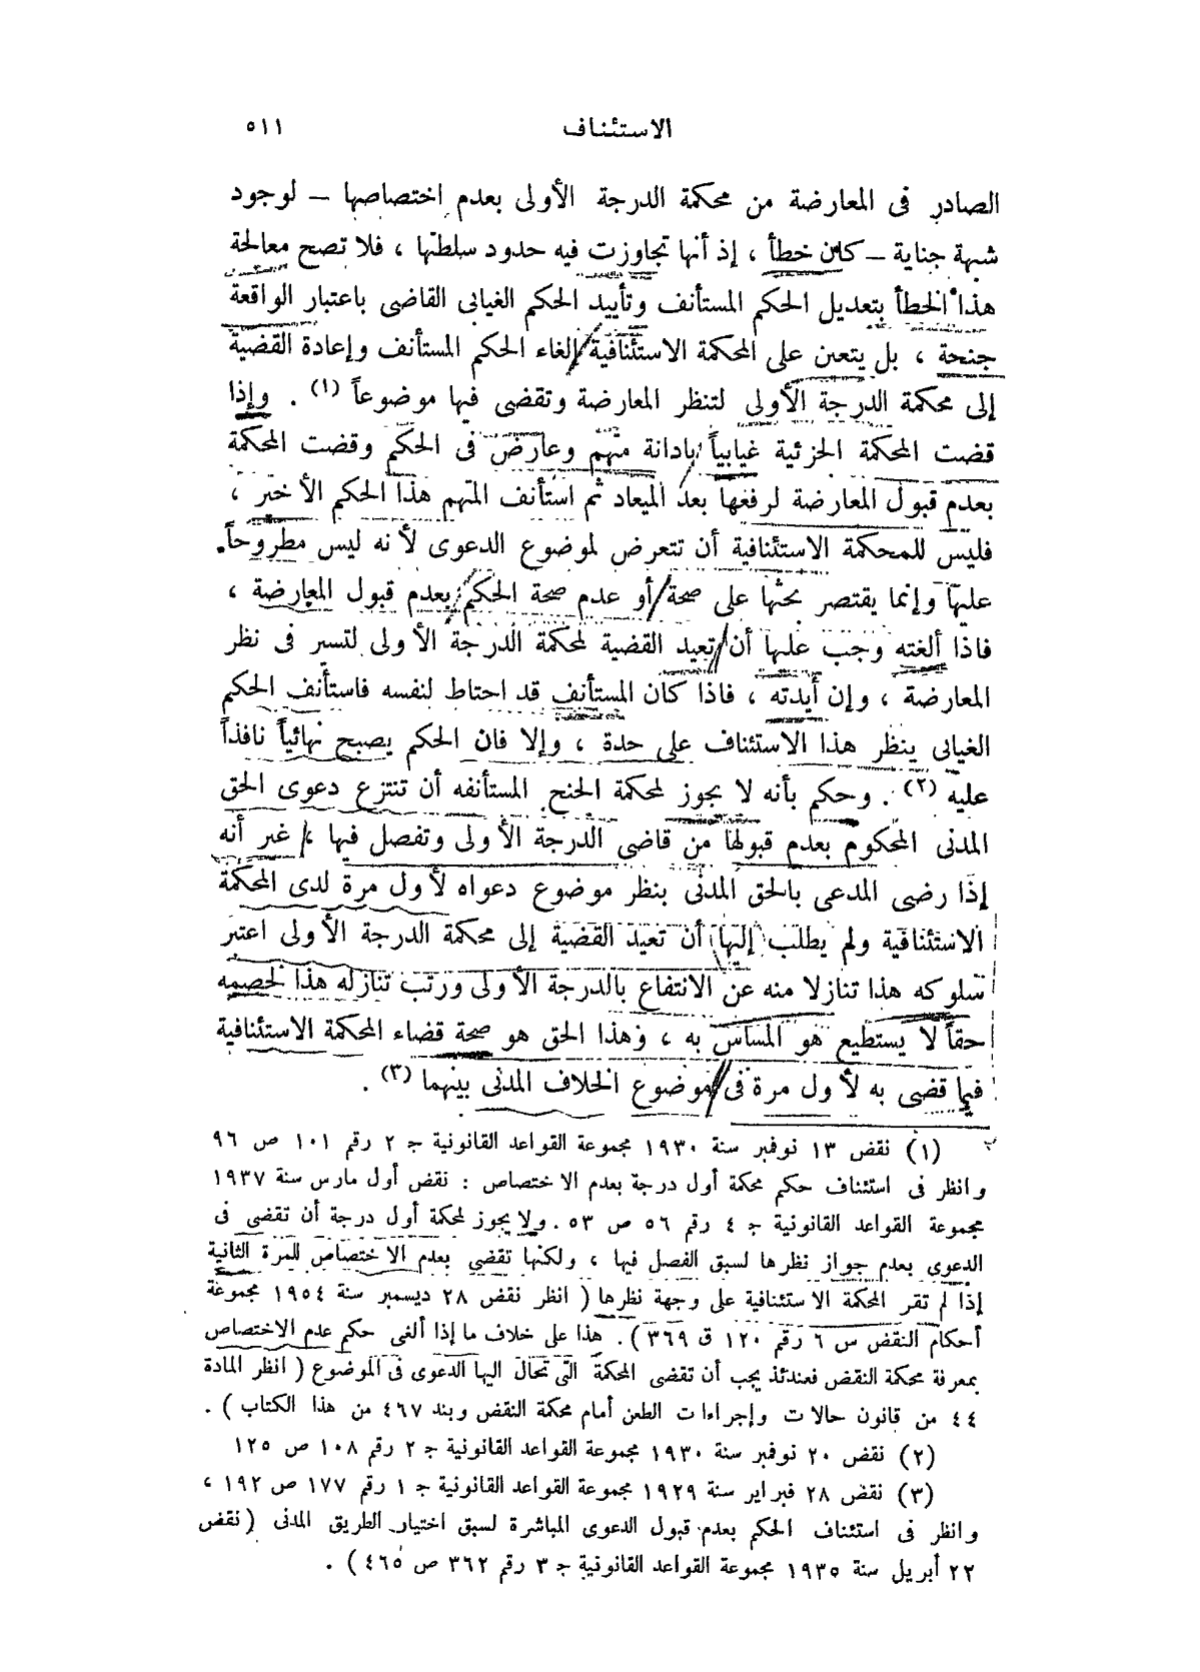 الاستئناف ٥١١
الصادر فى المعارضة من محكمة الدرجة الأولى بعدم اختصاصها – لوجود
شبهة جناية – كان خطأ ، إذ أنها تجاوزت فيه حدود سلطتها ، فلا تصح معالجة
هذا الخطأ بتعديل الحكم المستأنف وتأييد الحكم الغيابى القاضى باعتبار الواقعة
جنحة ، بل يتعين على المحكمة الاستئنافية إلغاء الحكم المستأنف وإعادة القضية
إلى محكمة الدرجة الأولى لتنظر المعارضة وتقضى فيها موضوعاً (١) . وإذا
قضت المحكمة الجزئية غيابياً بادانة متهم وعارض فى الحكم وقضت المحكمة
بعدم قبول المعارضة لرفعها بعد الميعاد ثم استأنف المتهم هذا الحكم الأخير ،
فليس للمحكمة الاستئنافية أن تتعرض لموضوع الدعوى لأنه ليس مطروحاً
عليها وإنما يقتصر بحثها على صحة أو عدم صحة الحكم بعدم قبول المعارضة ،
فاذا ألغته وجب عليها أن تعيد القضية لمحكمة الدرجة الأولى لتسير فى نظر
المعارضة ، وإن أيدته ، فاذا كان المستأنف قد احتاط لنفسه فاستأنف الحكم
الغيابى ينظر هذا الاستئناف على حدة ، وإلا فان الحكم يصبح نهائياً نافذاً
عليه (٢) . وحكم بأنه لا يجوز لمحكمة الجنح المستأنفه أن تنتزع دعوى الحق
المدنى المحكوم بعدم قبولها من قاضى الدرجة الأولى وتفصل فيها ، غير أنه
إذا رضى المدعى بالحق المدنى بنظر موضوع دعواه لأول مرة لدى المحكمة
الاستئنافية ولم يطلب إليها أن تعيد القضية إلى محكمة الدرجة الأولى اعتبر
سلوكه هذا تنازلا منه عن الانتفاع بالدرجة الأولى ورتب تنازله هذا لخصمه
حقاً لا يستطيع هو المساس به ، وهذا الحق هو صحة قضاء المحكمة الاستئنافية
فيما قضى به لأول مرة فى موضوع الخلاف المدنى بينهما (٣) .
(١) نقض ١٣ نوفمبر سنة ١٩٣٠ مجموعة القواعد القانونية ج ٢ رقم ١٠١ ص ٩٦
وانظر فى استئناف حكم محكمة أول درجة بعدم الاختصاص : نقض أول مارس سنة ١٩٣٧
مجموعة القواعد القانونية ج ٤ رقم ٥٦ ص ٥٣ . ولا يجوز لمحكمة أول درجة أن تقضى فى
الدعوى بعدم جواز نظرها لسبق الفصل فيها ، ولكنها تقضى بعدم الاختصاص للمرة الثانية
إذا لم تقر المحكمة الاستئنافية على وجهة نظرها ( انظر نقض ٢٨ ديسمبر سنة ١٩٥٤ مجموعة
أحكام النقض س ٦ رقم ١٢٠ ق ٣٦٩ ) . هذا على خلاف ما إذا ألغى حكم عدم الاختصاص
بمعرفة محكمة النقض فعندئذ يجب أن تقضى المحكمة التى تحال اليها الدعوى فى الموضوع ( انظر المادة
٤٤ من قانون حالات وإجراءات الطعن أمام محكمة النقض وبند ٤٦٧ من هذا الكتاب ) .
(٢) نقض ٢٠ نوفمبر سنة ١٩٣٠ مجموعة القواعد القانونية ج ٢ رقم ١٠٨ ص ١٢٥
(٣) نقض ٢٨ فبراير سنة ١٩٢٩ مجموعة القواعد القانونية ج ١ رقم ١٧٧ ص ١٩٢ ،
وانظر فى استئناف الحكم بعدم قبول الدعوى المباشرة لسبق اختيار الطريق المدنى ( نقض
٢٢ أبريل سنة ١٩٣٥ مجموعة القواعد القانونية ج ٣ رقم ٣٦٢ ص ٤٦٥ ) .